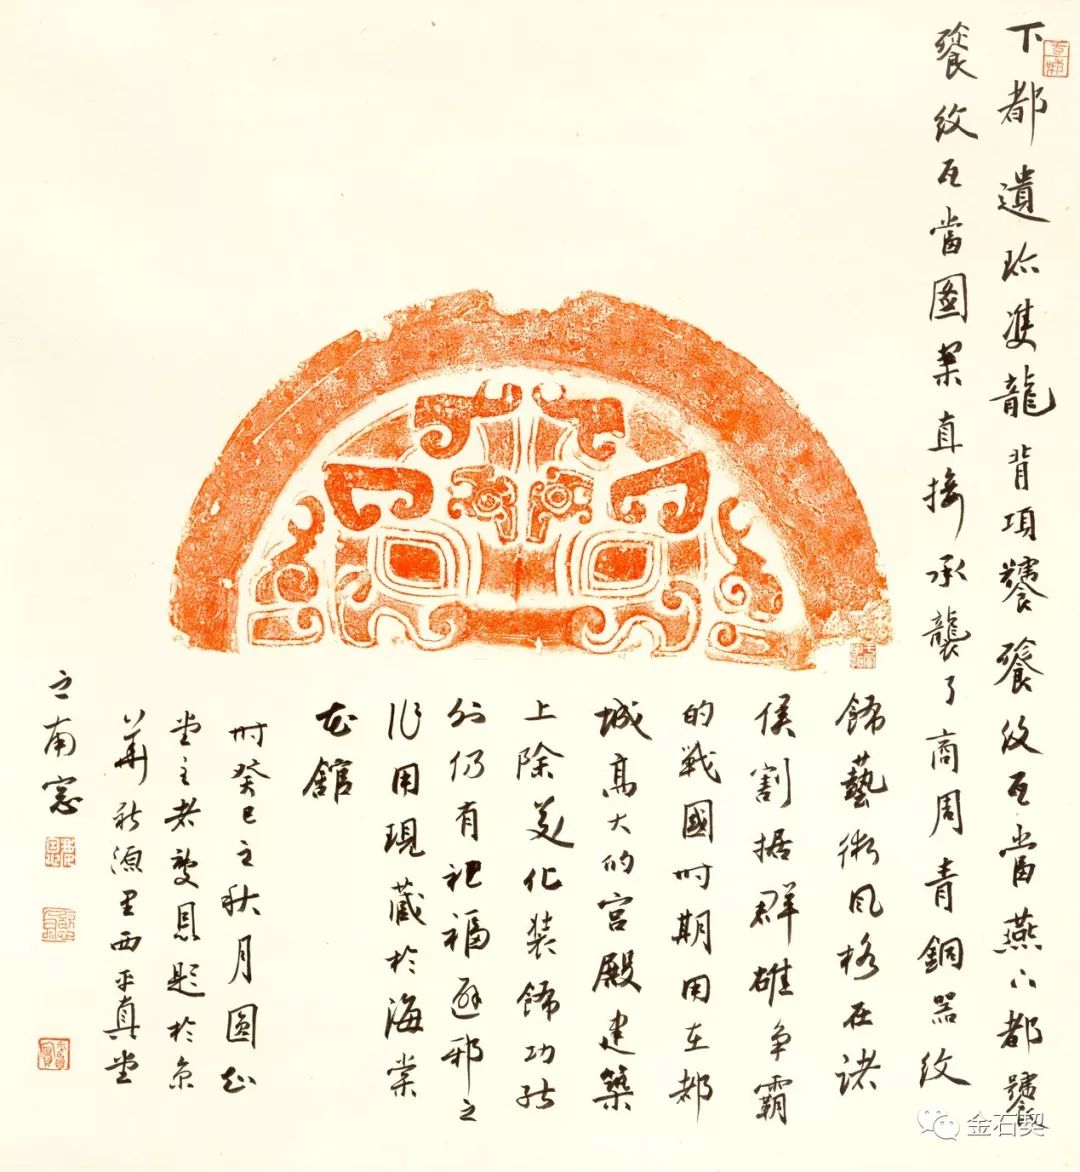 下都遺珍雙龍背項饕餮紋瓦當燕下都饕
餮紋瓦當圖案直接承襲了商周青銅器紋
飾藝術風格在諸
侯割據群雄爭霸
的戰國時期用在都
城高大的宮殿建築
上除美化裝飾功能
外仍有祀福避邪之
作用現藏於海棠
花館
時癸巳之秋月圓花
堂主老夔恩題於京
華新源里西平真堂
之南窓
金石契